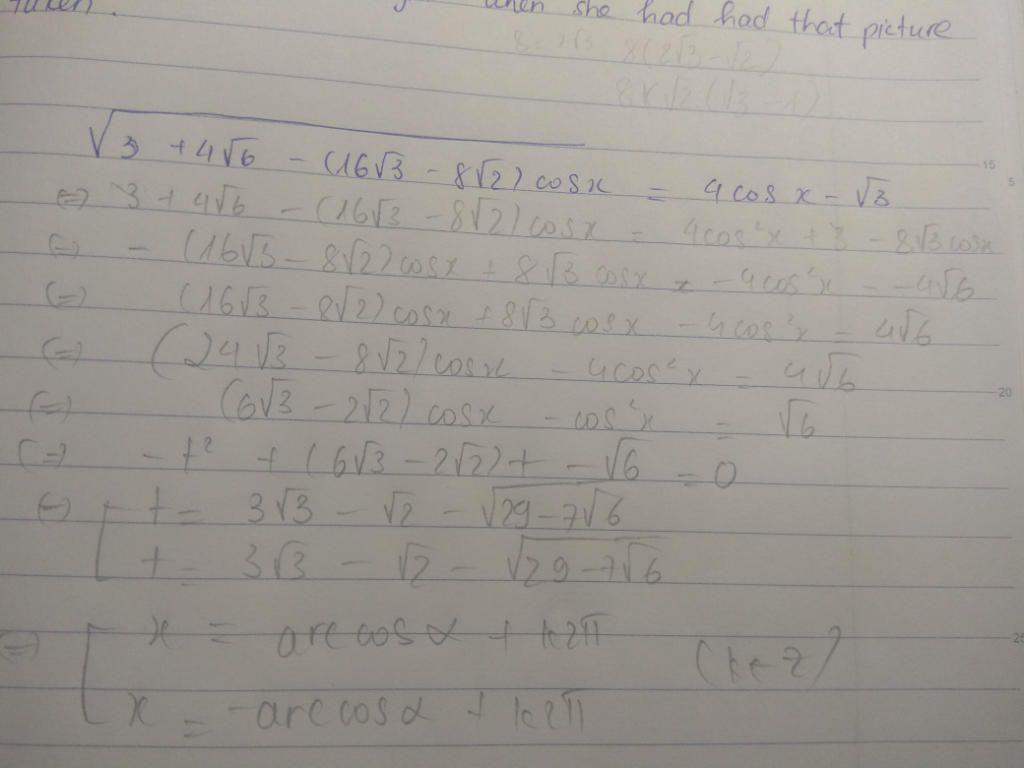 taken. when she had had that picture
8(2√3-√2)
8√√2(√3-1)
√3 + 4√6 - (16√3 - 8√2) cosx = 4cos x - √3
15
5
⇔ 3 + 4√6 - (16√3 - 8√2) cosx = 4cos²x + 3 - 8√3 cosx
⇔ - (16√3 - 8√2) cosx + 8√3 cosx - 4cos²x = -4√6
⇔ (16√3 - 8√2) cosx + 8√3 cosx - 4cos²x = 4√6
⇔ (24√3 - 8√2) cosx - 4cos²x = 4√6
20
⇔ (6√3 - 2√2) cosx - cos²x = √6
⇔ - t² + (6√3 - 2√2) t - √6 = 0
⇔ t = 3√3 - √2 - √29-7√6
t = 3√3 - √2 - √29-7√6
⇔ x = arccosα + k2π
25
(k∈Z)
x = -arccosα + k2π